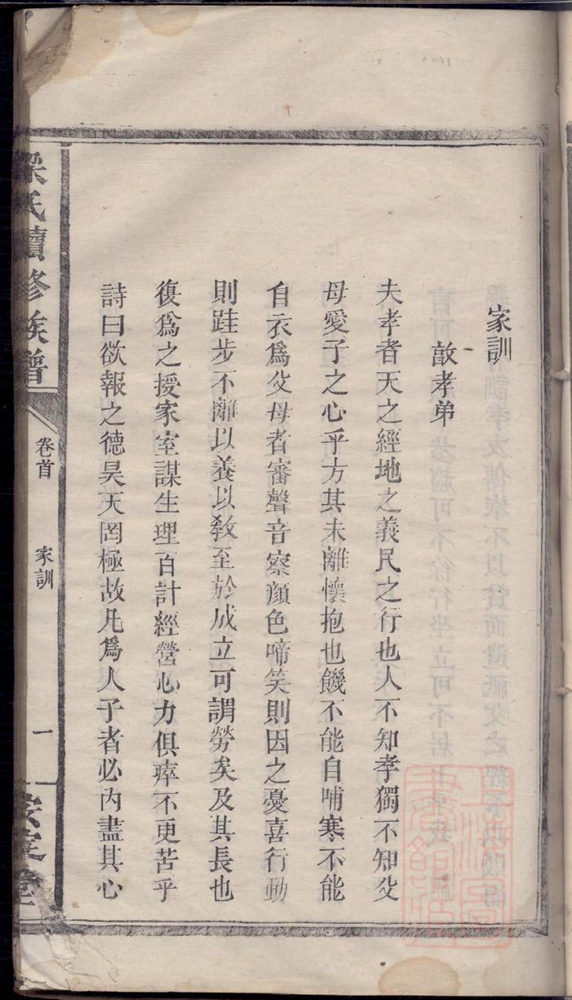 家訓
敨孝弟
夫孝者天之經地之義民之行也人不知孝獨不知父
母愛子之心乎方其未離懷抱也饑不能自哺寒不能
自衣爲父母者審聲音察顔色啼笑則因之憂喜行動
則跬步不離以養以敎至於成立可謂勞矣及其長也
復爲之授家室謀生理百計經營心力俱瘁不更苦乎
詩曰欲報之德昊天罔極故凡爲人子者必內盡其心
氏續修族譜
卷首
家訓
一